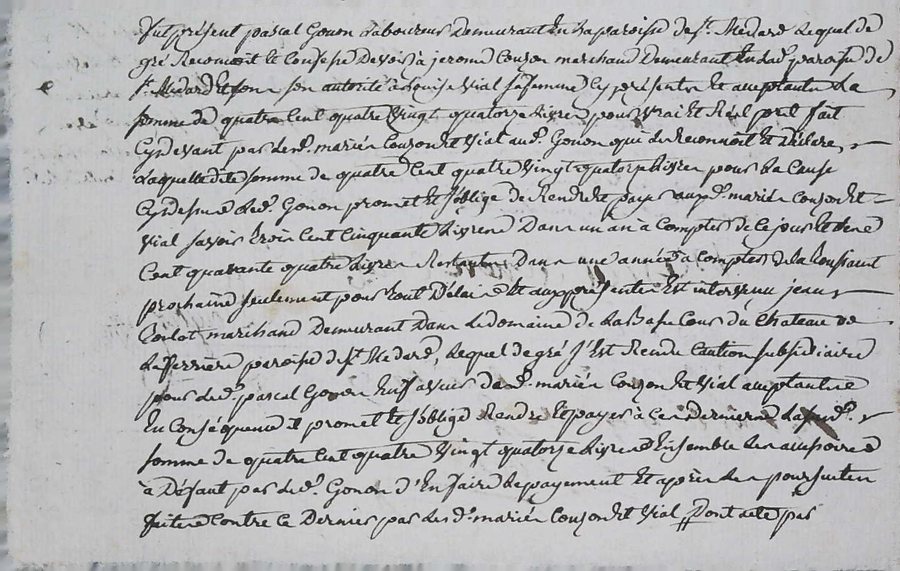 fut présent pascal Gonon Laboureur Demeurant En La paroisse de st. Medard Lequel de
gré Reconnoit et Confesse Devoir à jerome Couzon marchand Demeurant En Lad. paroisse de
st. Medard Et sous son autorité à Louise Vial sa femme Cy présentes Et acceptantes La
somme de quatre Cent quatre Vingt quatorze Livres pour Vrai Et Réel prêt fait
Cydevant par lesd. mariés Couzon Et Vial aud. Gonon qui le Reconnoit Et Déclare,
Laquelle dite somme de quatre Cent quatre Vingt quatorze Livres pour La Cause
Cydessus Led. Gonon promet Et s'oblige de Rendre Et payer auxd. mariés Couzon Et
Vial savoir trois Cent Cinquante Livres Dans un an à Compter de Ce jour Et les
Cent quarante quatre Livres Restantes Dans une année à Compter de la toussaint
prochaine seulement pour tout Délai Et aux présentes Est intervenu jean
marchand Demeurant Dans Le domaine de La Basse Cour du Chateau de
La ferriere paroisse de st. Medard, Lequel de gré s'Est Rendu Caution subsidiaire
pour Led. pascal Gonon En faveur desd. mariés Couzon Et Vial acceptants
En Conséquence il promet Et s'oblige Rendre Et payer à Ces Derniers Lasusd.
somme de quatre Cent quatre Vingt quatorze Livres Ensemble Les accessoires
à Défaut par Led. Gonon d'En faire Le payement Et après Les poursuites
faites Contre Ce Dernier par Lesd. mariés Couzon Et Vial Dont acte par